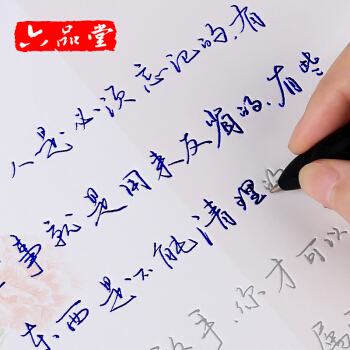 六品堂
人是必须忘记的,有
事就是用来反省的,有些
东西是不能清理
手,你才可以